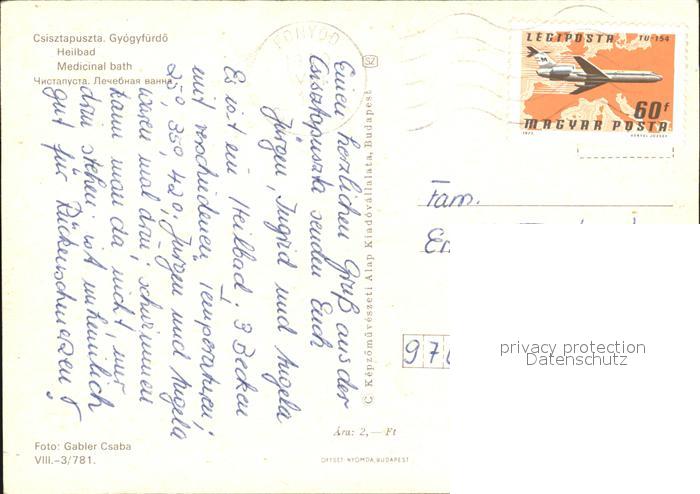 Csisztapuszta. Gyógyfürdő
Heilbad
Medicinal bath
Чистапуста. Лечебная ванна
Einen herzlichen Gruß aus der
Csisztapuszta senden Euch
Jürgen, Ingrid und Angela
Es ist ein Heilbad, 3 Becken
mit verschiedenen Temperaturen;
25°, 35°, 42°; Jürgen und Angela
waren mal drin, schwimmen
kann man da nicht, nur
drin stehen ist unheimlich
gut für Rückenschmerzen
Foto: Gabler Csaba
VIII.–3/781.
© Képzőművészeti Alap Kiadóvállalata, Budapest
SZ
Ára: 2,— Ft
OFFSET-NYOMDA, BUDAPEST
FONYÓD
LÉGIPOSTA TU-154
60f
MAGYAR POSTA
Fam.
97
privacy protection
Datenschutz